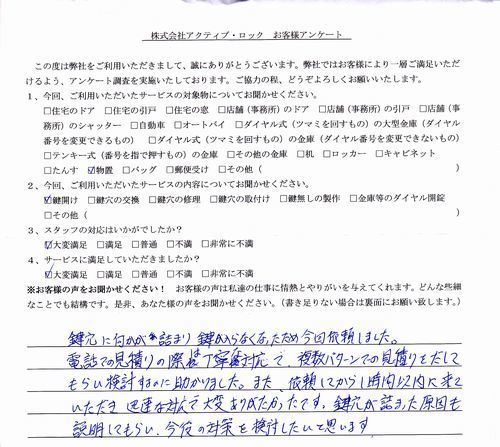 株式会社アクティブ・ロック　お客様アンケート
この度は弊社をご利用いただきまして、誠にありがとうございます。弊社ではお客様により一層ご満足いただ
けるよう、アンケート調査を実施いたしております。ご協力の程、どうぞよろしくお願いいたします。
1、今回、ご利用いただいたサービスの対象物についてお聞かせください。
□住宅のドア　□住宅の引戸　□住宅の窓　□店舗（事務所）のドア　□店舗（事務所）の引戸　□店舗（事
務所）のシャッター　□自動車　□オートバイ　□ダイヤル式（ツマミを回すもの）の大型金庫（ダイヤル
番号を変更できるもの）　□ダイヤル式（ツマミを回すもの）の金庫（ダイヤル番号を変更できないもの）
□テンキー式（番号を指で押すもの）の金庫　□その他の金庫　□机　□ロッカー　□キャビネット
□たんす　☑物置　□バッグ　□郵便受け　□その他（　　　　）
2、今回、ご利用いただいたサービスの内容についてお聞かせください。
☑鍵開け　□鍵穴の交換　□鍵穴の修理　□鍵穴の取付け　□鍵無しの製作　□金庫等のダイヤル開錠
□その他（　　　　）
3、スタッフの対応はいかがでしたか？
☑大変満足　□満足　□普通　□不満　□非常に不満
4、サービスに満足していただきましたか？
☑大変満足　□満足　□普通　□不満　□非常に不満
※お客様の声をお聞かせください！　お客様の声は私達の仕事に情熱とやりがいを与えてくれます。どんな些細
なことでも結構です。是非、あなた様の声をお聞かせください。（書き足りない場合は裏面にお願い致します。）
鍵穴に何かが詰まり鍵が入らなくなったため今回依頼しました。
電話での見積りの際は丁寧な対応で、複数パターンでの見積りをだして
もらい検討するのに助かりました。また、依頼してから1時間以内に来て
いただき迅速な対応で大変ありがたかったです。鍵穴が詰まった原因も
説明してもらい、今後の対策を検討したいと思います